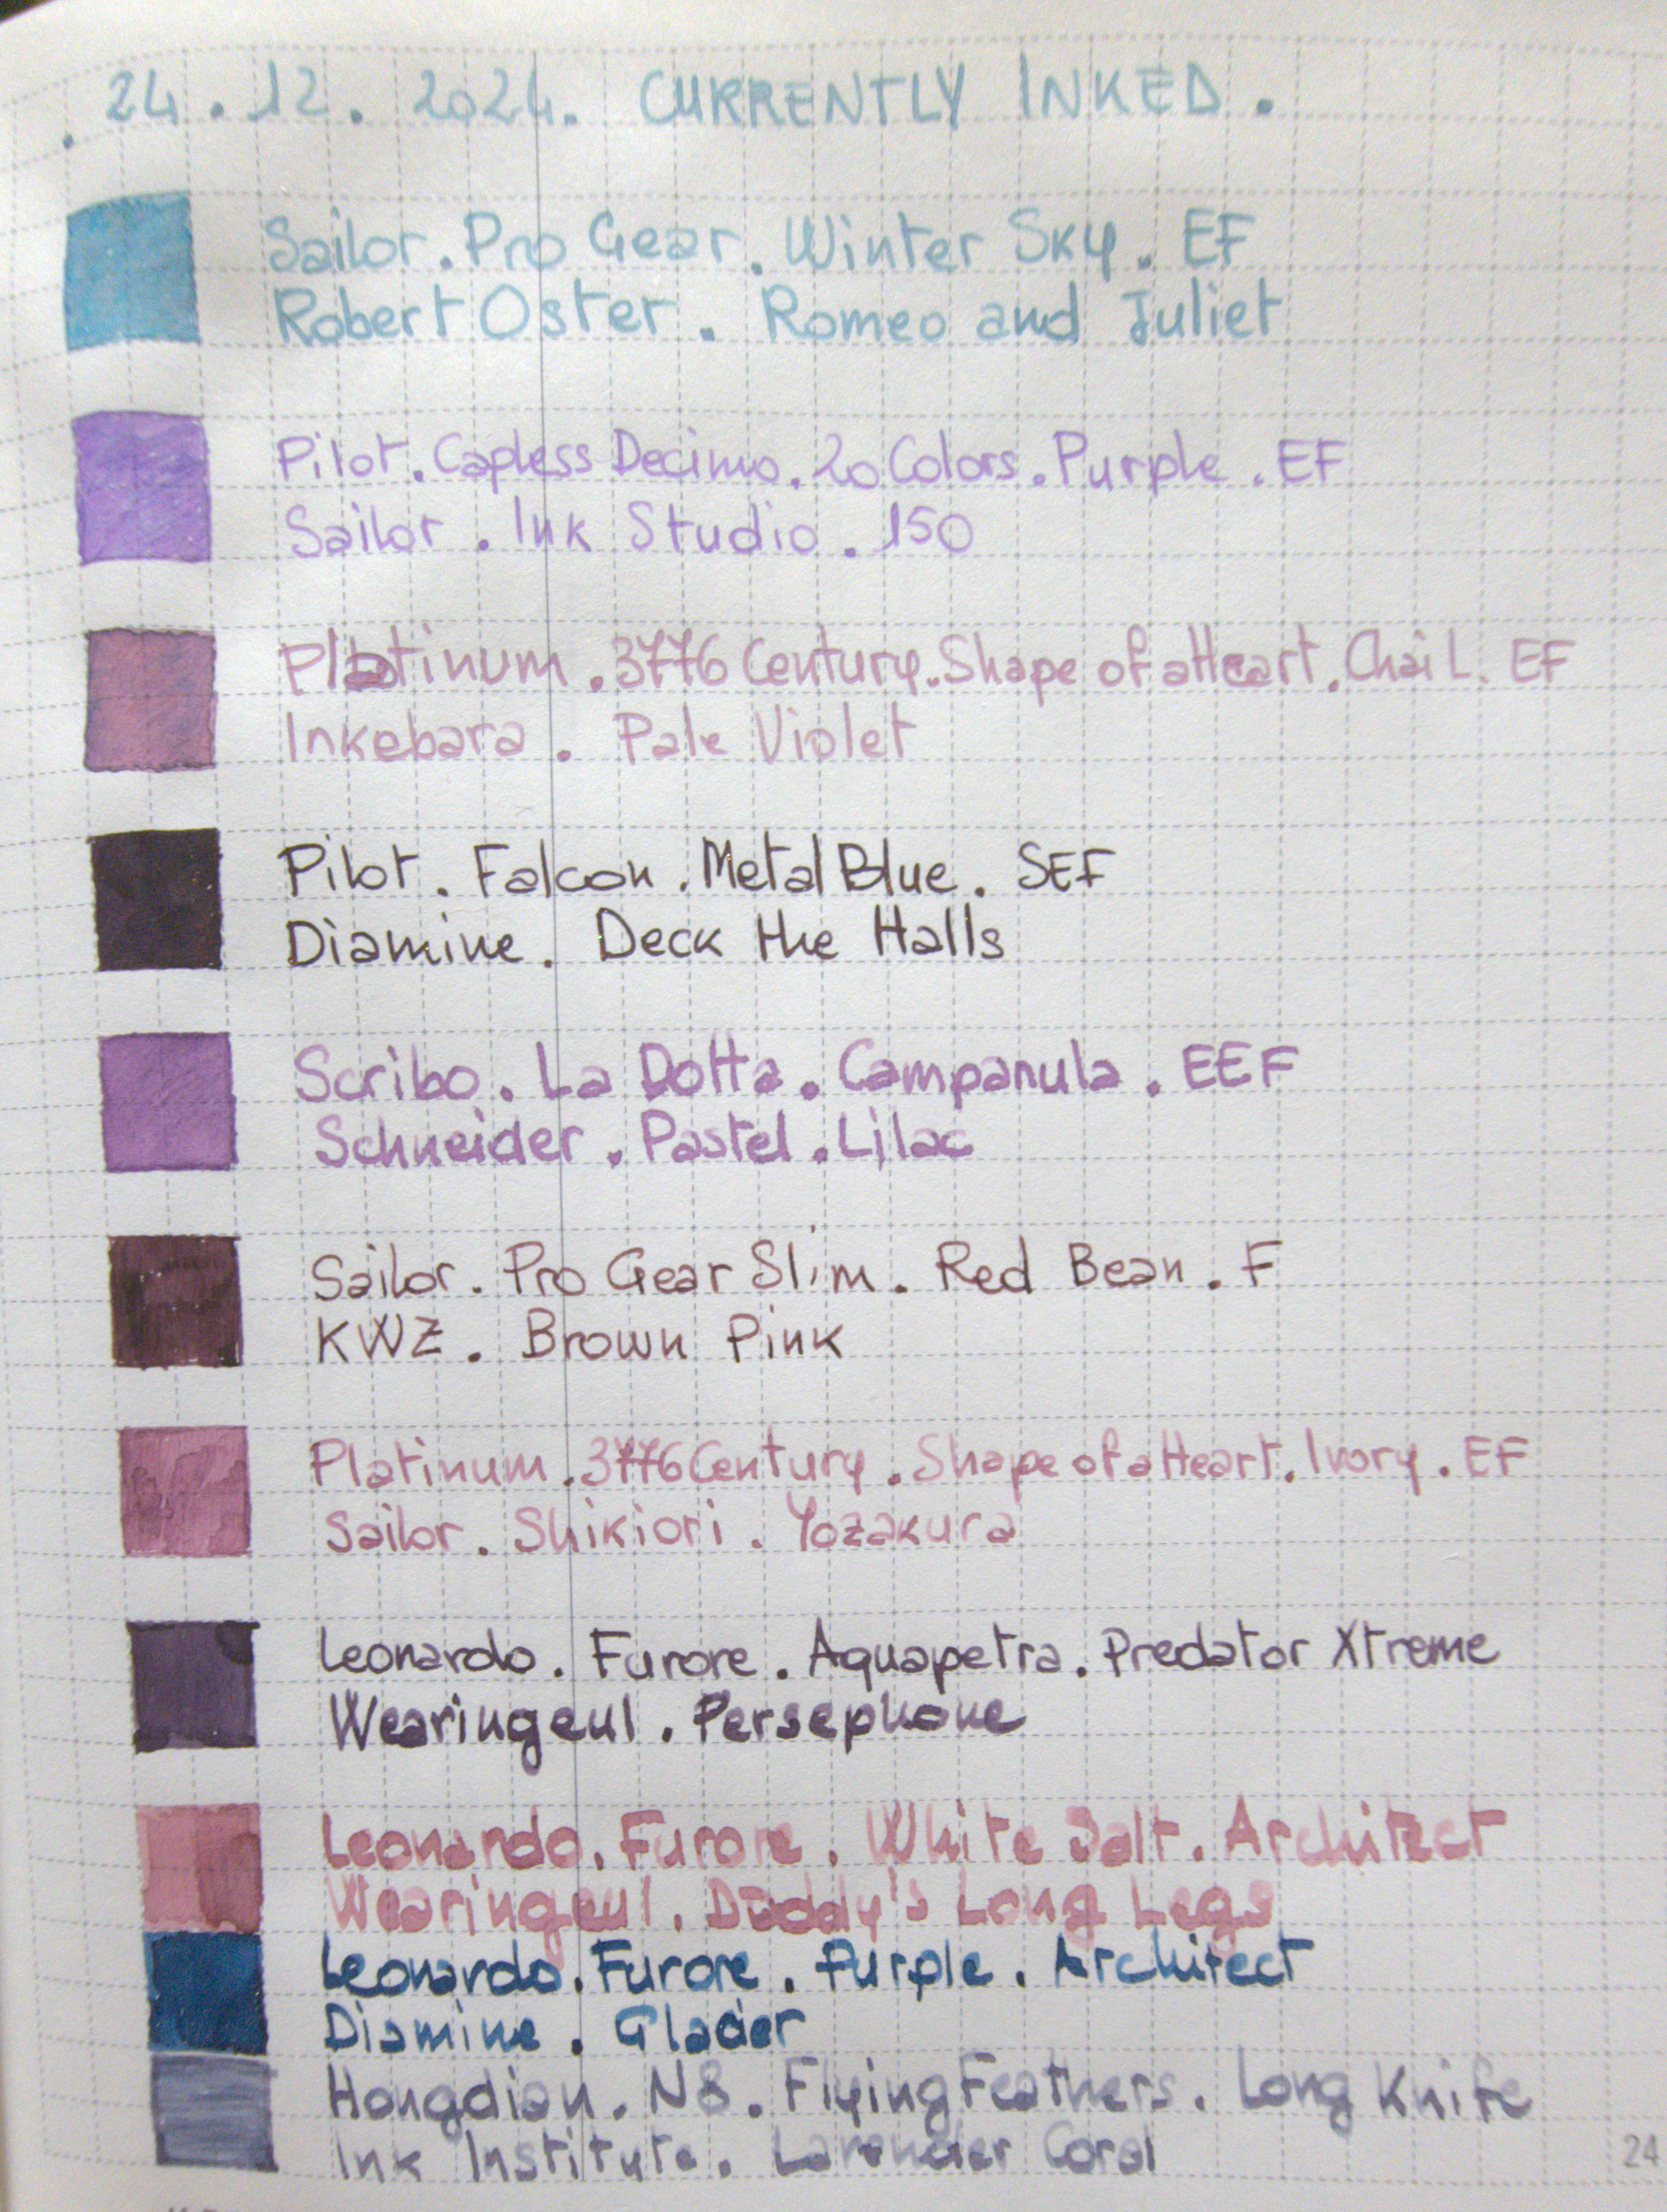 . 24 . 12 . 2024. CURRENTLY INKED .
Sailor . Pro Gear . Winter Sky . EF
Robert Oster . Romeo and Juliet
Pilot . Capless Decimo . 20 Colors . Purple . EF
Sailor . Ink Studio . 150
Platinum . 3776 Century . Shape of a Heart . Chai L. EF
Inkebara . Pale Violet
Pilot . Falcon . Metal Blue . SEF
Diamine . Deck the Halls
Scribo . La Dotta . Campanula . EEF
Schneider . Pastel . Lilac
Sailor . Pro Gear Slim . Red Bean . F
KWZ . Brown Pink
Platinum . 3776 Century . Shape of a Heart . Ivory . EF
Sailor . Shikiori . Yozakura
Leonardo . Furore . Aquapetra . Predator Xtreme
Wearingeul . Persephone
Leonardo . Furore . White Salt . Architect
Wearingeul . Daddy's Long Legs
Leonardo . Furore . Purple . Architect
Diamine . Glacier
Hongdian . N8 . Flying Feathers . Long Knife
Ink Institute . Lavender Coral
24